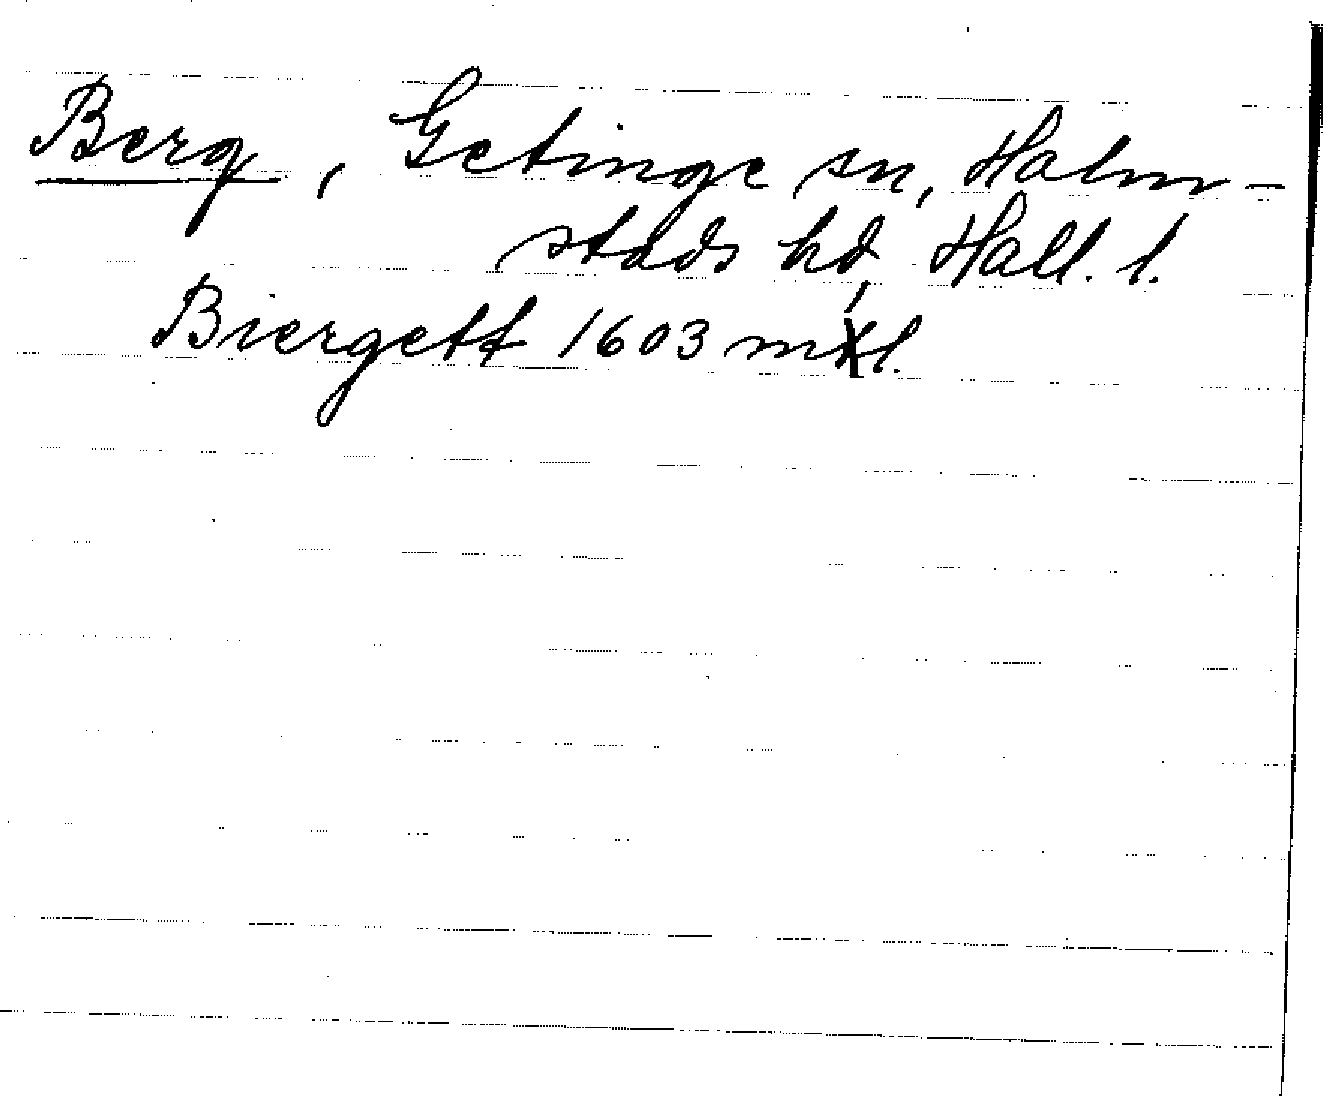 Berg, Getinge sn, Halm-
stads hd, Hall. l.
Biergett 1603 mtl.